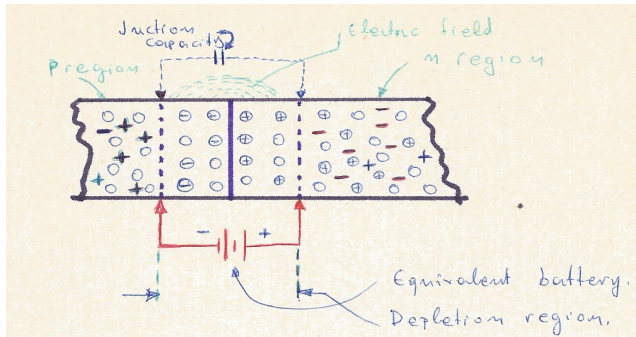 Juction
capacity
Electric field
P region
n region
- +
Equivalent battery.
Depletion region.